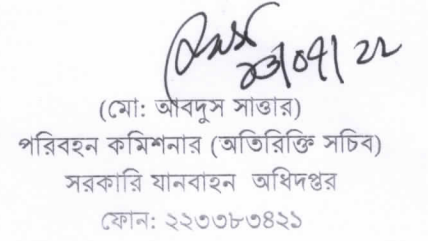 ২৩/০৭/২২
(মো: আবদুস সাত্তার)
পরিবহন কমিশনার (অতিরিক্তি সচিব)
সরকারি যানবাহন অধিদপ্তর
ফোন: ২২৩৩৮৩৪২১